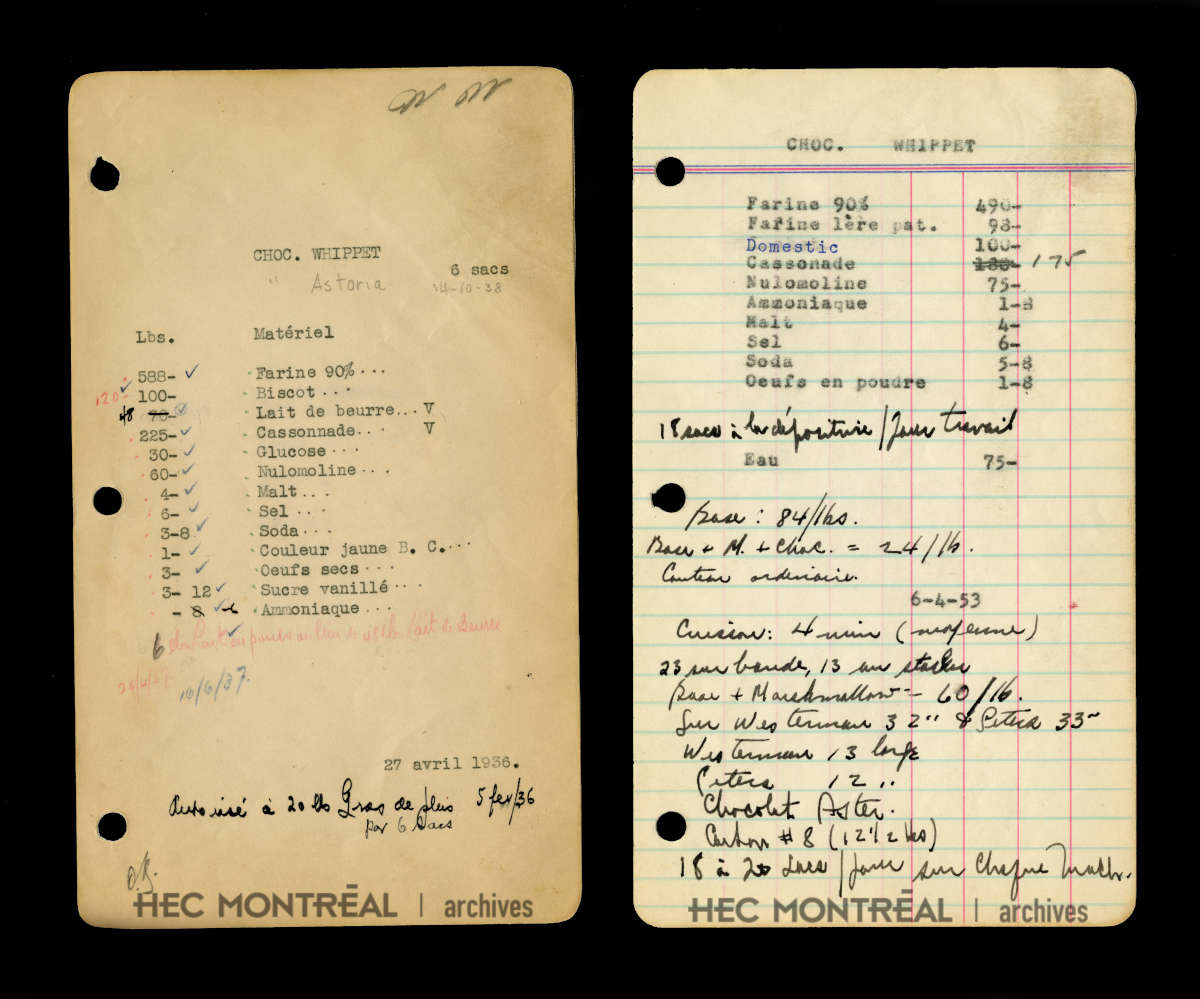 CHOC. WHIPPET
6 sacs
" Astoria 14-10-38
Lbs. Matériel
588- Farine 90%...
120- 100- Biscot...
48 70- Lait de beurre... V
225- Cassonnade... V
30- Glucose...
60- Nulomoline...
4- Malt...
6- Sel...
3-8 Soda...
1- Couleur jaune B. C....
3- Oeufs secs...
3- 12 Sucre vanillé...
- 8 Ammoniaque...
6 lbs Lait en poudre au lieu de 48 lbs Lait de Beurre
16/6/37.
27 avril 1936.
Autorisé à 20 lbs Gras de plus 5 fev/36
par 6 Sacs
HEC MONTRÉAL | archives
CHOC. WHIPPET
Farine 90% 490-
Farine 1ère pat. 98-
Domestic 100-
Cassonade 180- 175
Nulomoline 75-
Ammoniaque 1-8
Malt 4-
Sel 6-
Soda 5-8
Oeufs en poudre 1-8
18 sacs à la / Jour travail
Eau 75-
Base : 84/lbs.
Base + M. + Choc. = 24/lb.
ordinaire.
6-4-53
Cuisson: 4 min (moyenne)
23 sur bande, 13 au
Base + Marshmallow = 60/lb.
Sur Westerman 32" & Peters 33"
Westerman 13 large
Peters 12 "
Chocolat Aster.
Carton # 8 (12 1/2 lbs)
18 à 20 Sacs / Jour sur Chaque Mach.
HEC MONTRÉAL | archives